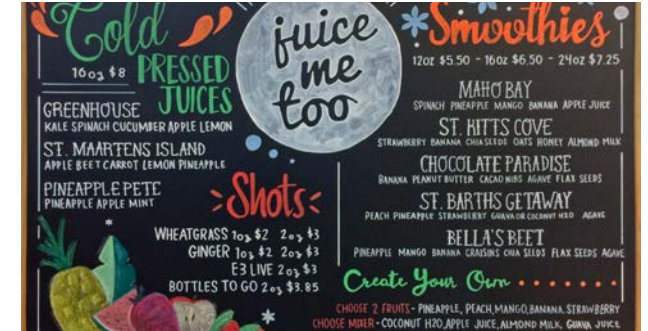 Cold
16oz $8
PRESSED
JUICES
GREENHOUSE
KALE SPINACH CUCUMBER APPLE LEMON
ST. MAARTENS ISLAND
APPLE BEET CARROT LEMON PINEAPPLE
PINEAPPLE PETE
PINEAPPLE APPLE MINT
juice
me
too
Shots
WHEATGRASS 1oz $2 2oz $3
GINGER 1oz $2 2oz $3
E3 LIVE 2oz $3
BOTTLES TO GO 2oz $3.85
Smoothies
12oz $5.50 - 16oz $6.50 - 24oz $7.25
MAHO BAY
SPINACH PINEAPPLE MANGO BANANA APPLE JUICE
ST. KITTS COVE
STRAWBERRY BANANA CHIA SEEDS OATS HONEY ALMOND MILK
CHOCOLATE PARADISE
BANANA PEANUT BUTTER CACAO NIBS AGAVE FLAX SEEDS
ST. BARTHS GETAWAY
PEACH PINEAPPLE STRAWBERRY GUAVA OR COCONUT H2O AGAVE
BELLA'S BEET
PINEAPPLE MANGO BANANA CRAISINS CHIA SEEDS FLAX SEEDS AGAVE
Create Your Own
CHOOSE 2 FRUITS - PINEAPPLE, PEACH, MANGO, BANANA, STRAWBERRY
CHOOSE MIXER - COCONUT H2O, APPLE JUICE, ALMOND MILK, GUAVA JUICE